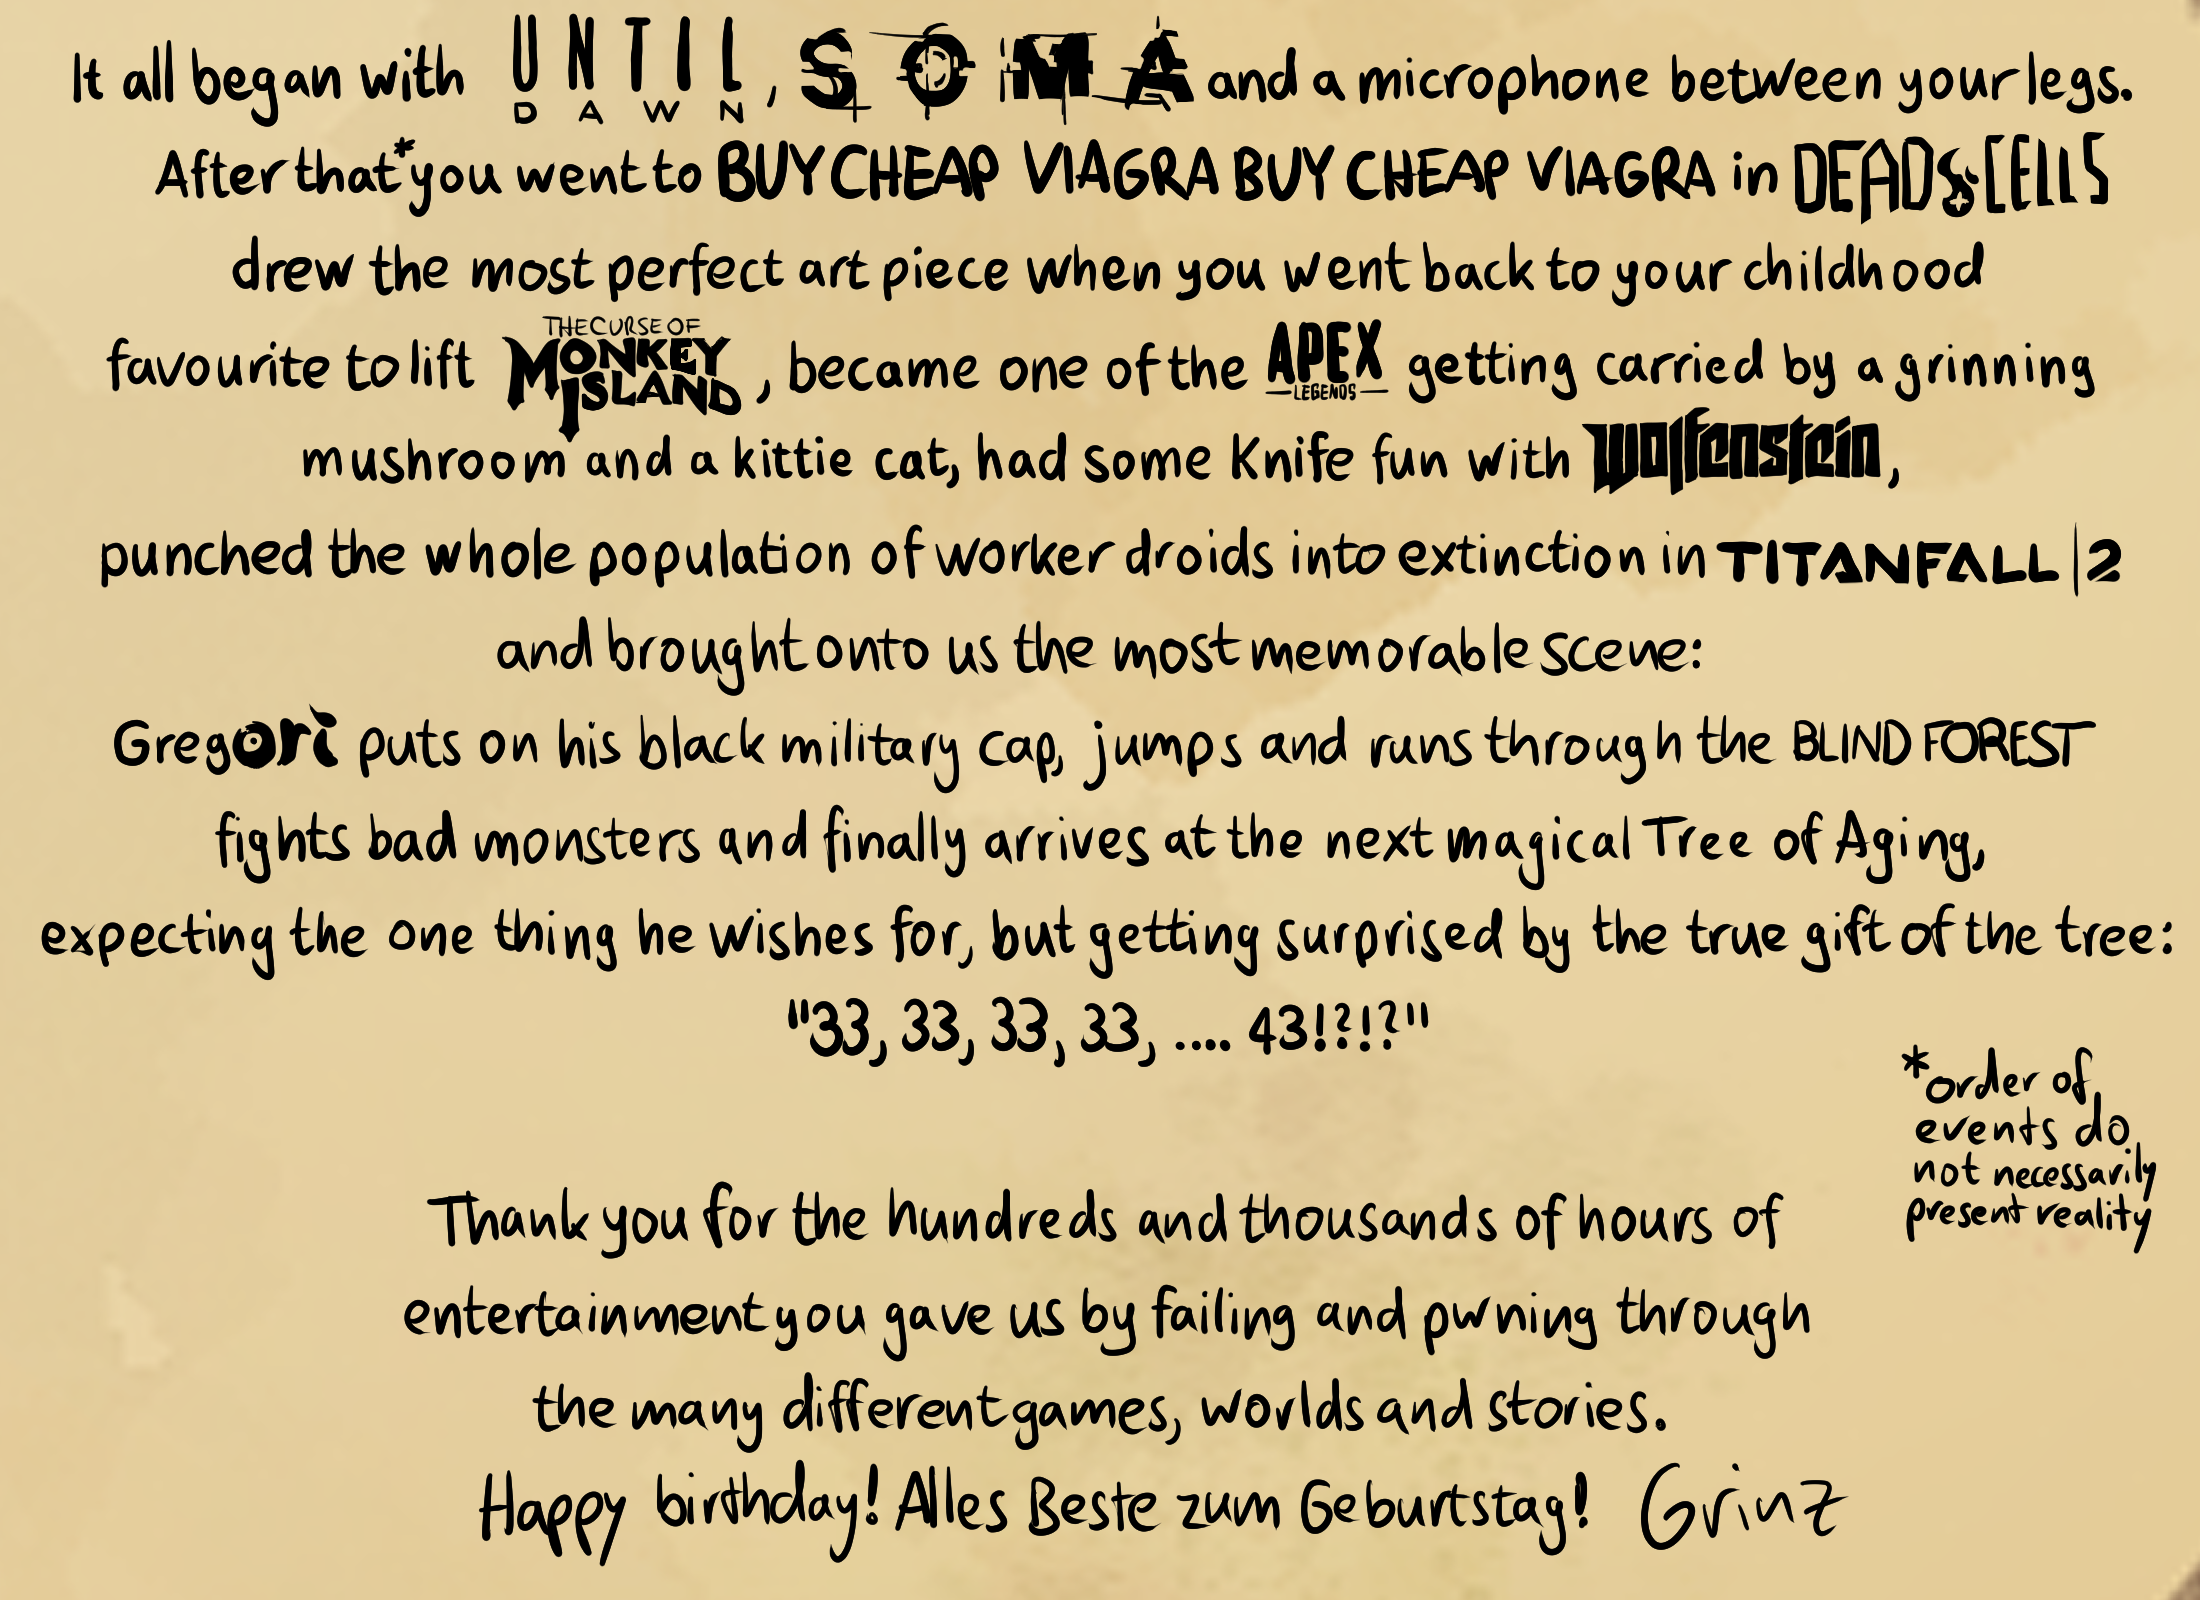 It all began with UNTIL DAWN, SOMA and a microphone between your legs.
After that* you went to BUY CHEAP VIAGRA BUY CHEAP VIAGRA in DEAD CELLS
drew the most perfect art piece when you went back to your childhood
favourite to lift THE CURSE OF MONKEY ISLAND, became one of the APEX LEGENDS getting carried by a grinning
mushroom and a kittie cat, had some Knife fun with Wolfenstein,
punched the whole population of worker droids into extinction in TITANFALL|2
and brought onto us the most memorable scene:
Gregori puts on his black military cap, jumps and runs through the BLIND FOREST
fights bad monsters and finally arrives at the next magical Tree of Aging,
expecting the one thing he wishes for, but getting surprised by the true gift of the tree:
"33, 33, 33, 33, .... 43!?!?"
*order of
events do
not necessarily
present reality
Thank you for the hundreds and thousands of hours of
entertainment you gave us by failing and pwning through
the many different games, worlds and stories.
Happy birthday! Alles Beste zum Geburtstag! Grinz